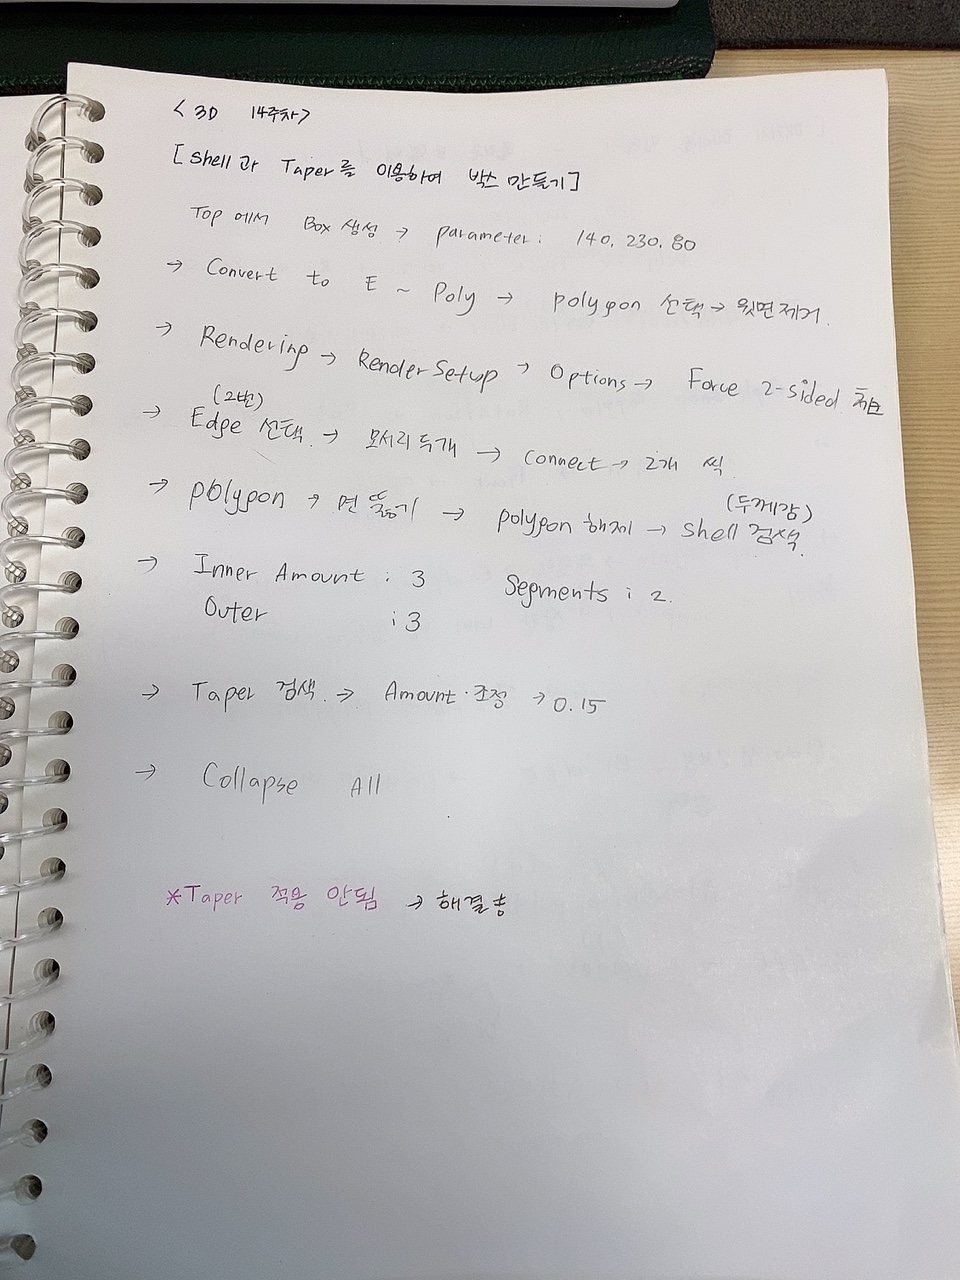 < 3D 14주차>
[ Shell과 Taper를 이용하여 박스 만들기]
Top 에서 Box 생성 → parameter : 140, 230, 80
→ Convert to E ~ Poly → polygon 선택 → 윗면제거.
→ Rendering → Render Setup → Options → Force 2-sided 체크
(2번)
→ Edge 선택. → 모서리 두개 → Connect → 2개 씩.
(두께감)
→ polygon → 면 뚫기 → polygon 해제 → shell 검색.
→ Inner Amount : 3 Segments : 2.
Outer : 3
→ Taper 검색. → Amount 조정 → 0.15
→ Collapse All
*Taper 적용 안됨 → 해결